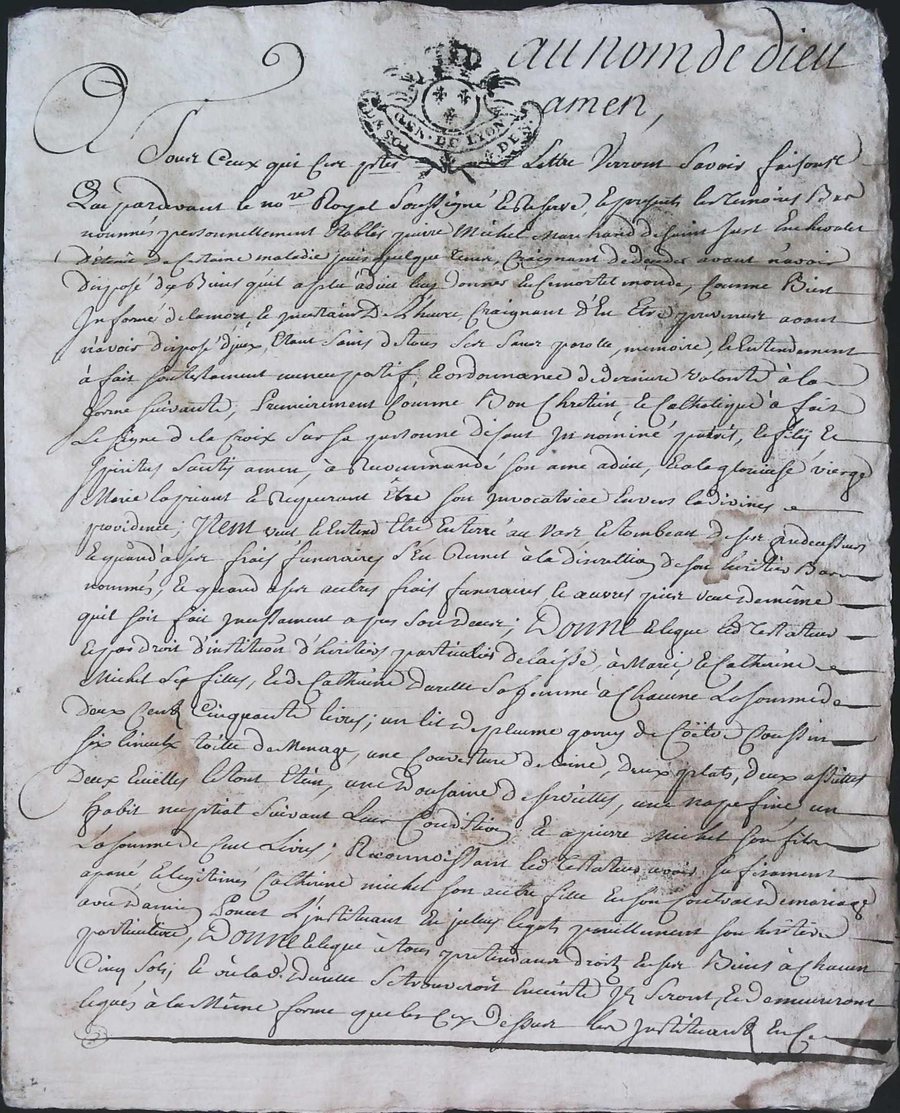 au nom de dieu
amen,
GEN. DE LYON
Tous Ceux qui Ces pntes Lettre Verront Savoir faisons
Que pardevant le nore Royal Soussigné &
nommés personnellement Michel Marchand de Saint Just
de Certaine maladie puis quelque temps, Craignant de déceder avant n'avoir
disposé des Biens qu'il a plu à dieu luy donner En Ce mortel monde, Comme Bien
Informé de la mort, & Incertain De L'heure, Craignant d'En Etre prevenu avant
n'avoir disposé d'jceux, Etant Sains de tous Ses Sens parolle, memoire, & Entendement
à fait son testament nuncupatif, & ordonnance de derniere Volonté à la
forme Suivante, Premierement Comme Bon Chretien, & Catholique à fait
Le Signe de la Croix Sur Sa personne disant In nominé patris, & filÿ &
Spiritus Sancti, amen, à Recommandé son ame à dieu, & a la glorieuse vierge
Marie la priant & Requerant Etre son Invocatrice Envers la divine
providence; Item veut & Entend Etre Enterré au Vas & tombeau de ses predecesseurs
& quand à ses frais funeraires S'En Remet à la discretion de son heritier Bas
nommé, & quand a ses autres frais funeraires, & œuvres pies veut de même
qu'il soit fait par Son heritier; Donne & legue led. testateur
& par droit d'institution d'heritiers particulier delaisse à Marie, & Catherine
Michel Ses filles, & de Catherine Sa femme à Chacune La Somme de
Deux Cent Cinquante livres; un lit de plume garny de Coëtre Coussin
Six linceulx toille de Menage, une Couverture de laine, deux plats, deux assiettes
Deux Ecuelles le tout Etain, une Dousaine de Serviettes, une nape fine, un
habit nuptial Suivant Leur Condition & a pierre Michel Son fils
La somme de Cent Livres; Reconnoissant led. testateur avoir Sufisament
apané & legitimé Catherine michel Son autre fille En son Contrat de mariage
avec L'jnstituant En jceluy legat pareillement son heritiere
particuliere, Donne & legue à tous pretendans droitz En ses Biens à Chacun
Cinq Sols; & où lad. Se trouveroit Enceinte Seront, & demeureront
legués à la Même forme que les Cy Dessus les Jnstituant En Ce